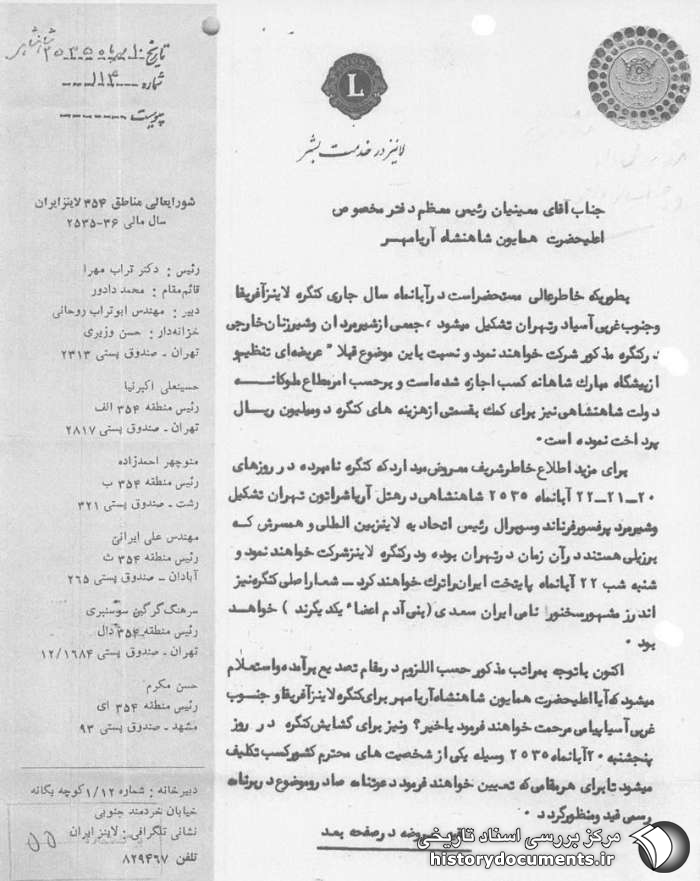 تاریخ ۱۰ مهرماه ۲۵۳۵ شاهنشاهی
شماره ۱۱۴
پیوست
LIONS
L
لاینز در خدمت بشر
شورایعالی مناطق ۳۵۴ لاینز ایران
سال مالی ۳۶-۲۵۳۵
رئیس : دکتر تراب مهرا
قائم‌مقام : محمد دادور
دبیر : مهندس ابوتراب روحانی
خزانه‌دار : حسن وزیری
تهران - صندوق پستی ۲۳۱۳
حسینعلی اکبرنیا
رئیس منطقه ۳۵۴ الف
تهران - صندوق پستی ۲۸۱۷
منوچهر احمدزاده
رئیس منطقه ۳۵۴ ب
رشت - صندوق پستی ۳۲۱
مهندس علی ایرانی
رئیس منطقه ۳۵۴ ث
آبادان - صندوق پستی ۲۶۵
سرهنگ گرگین سوسنبری
رئیس منطقه ۳۵۴ دال
تهران - صندوق پستی ۱۲/۱۶۸۴
حسن مکرم
رئیس منطقه ۳۵۴ ای
مشهد - صندوق پستی ۹۳
دبیرخانه : شماره ۱/۱۲ کوچه یگانه
خیابان خردمند جنوبی
نشانی تلگرافی : لاینز ایران
تلفن ۸۲۹۴۶۷
جناب آقای معینیان رئیس معظم دفتر مخصوص
اعلیحضرت همایون شاهنشاه آریامهر
بطوریکه خاطرعالی مستحضراست در آبانماه سال جاری کنگره لاینز آفریقا
و جنوب غربی آسیا در تهران تشکیل میشود ، جمعی از شیرمردان و شیرزنان خارجی
در کنگره مذکور شرکت خواهند نمود و نسبت باین موضوع قبلا" عریضه‌ای تنظیم و
از پیشگاه مبارک شاهانه کسب اجازه شده است و بر حسب امر مطاع ملوکانه
دولت شاهنشاهی نیز برای کمک بقسمتی از هزینه های کنگره دو میلیون ریال
پرداخت نموده است .
برای مزید اطلاع خاطر شریف معروض میدارد که کنگره نامبرده در روزهای
۲۰-۲۱-۲۲ آبانماه ۲۵۳۵ شاهنشاهی در هتل آریا شراتون تهران تشکیل
و شیرمرد پرفسور فرناند و سوبرال رئیس اتحادیه لاینز بین المللی و همسرش که
برزیلی هستند در آن زمان در تهران بوده و در کنگره لاینز شرکت خواهند نمود و
شنبه شب ۲۲ آبانماه پایتخت ایران را ترک خواهند کرد - شعار اصلی کنگره نیز
اندرز مشهور سخنور نامی ایران سعدی ( بنی آدم اعضاء یکدیگرند ) خواهد
بود .
اکنون با توجه بمراتب مذکور حسب اللزوم در مقام تصدیع برآمده و استعلام
میشود که آیا اعلیحضرت همایون شاهنشاه آریامهر برای کنگره لاینز آفریقا و جنوب
غربی آسیا پیامی مرحمت خواهند فرمود یا خیر؟ و نیز برای گشایش کنگره در روز
پنجشنبه ۲۰ آبانماه ۲۵۳۵ وسیله یکی از شخصیت های محترم کشور کسب تکلیف
میشود تا برای هر مقامی که تعیین خواهند فرمود دعوتنامه صادر و موضوع در برنامه
رسمی قید و منظور گردد .
بقیه عریضه در صفحه بعد
مرکز بررسی اسناد تاریخی
historydocuments.ir